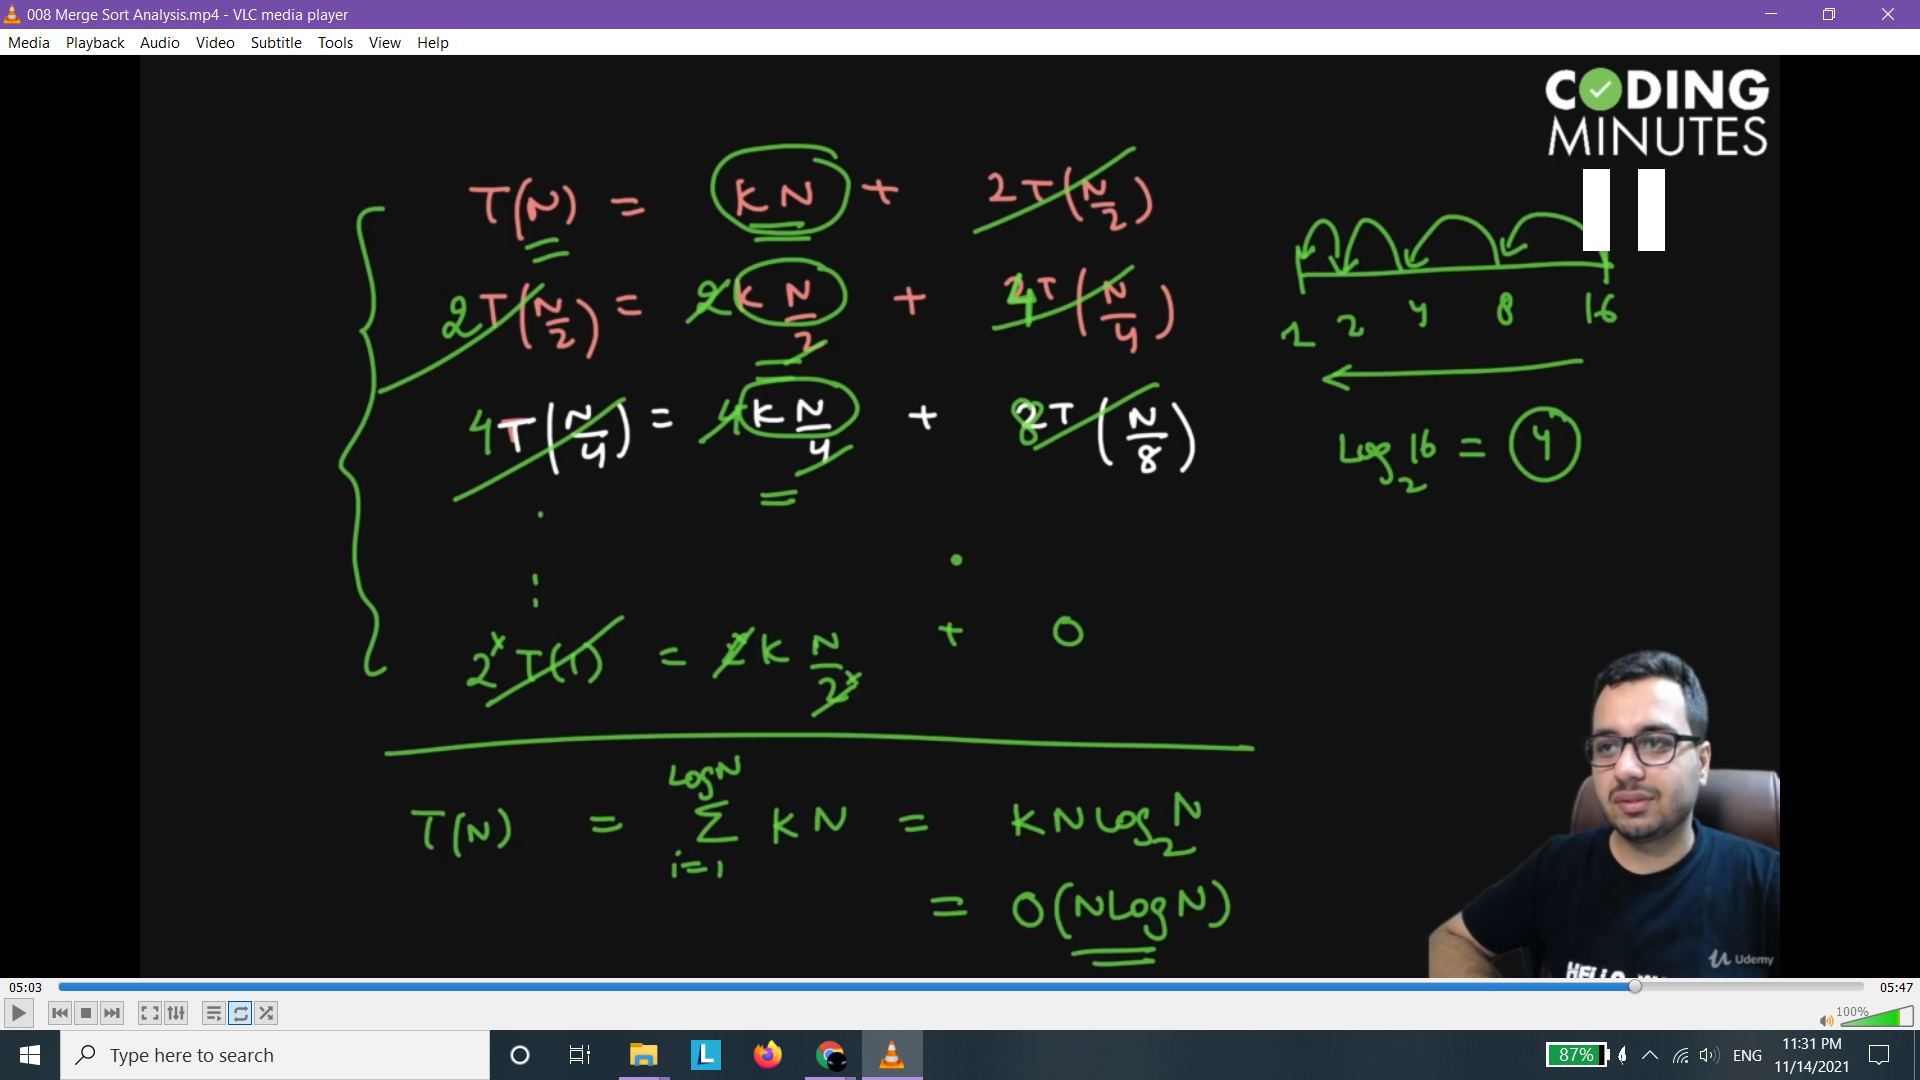 008 Merge Sort Analysis.mp4 - VLC media player
Media Playback Audio Video Subtitle Tools View Help
CODING
MINUTES
T(N) = KN + 2T(N/2)
2T(N/2) = 2K N/2 + 4T(N/4)
4T(N/4) = 4K N/4 + 8T(N/8)
1 2 4 8 16
Log₂16 = 4
2ˣT(1) = 2ˣK N/2ˣ + 0
T(N) = LogN Σ i=1 KN = KN Log₂N
= O(NLogN)
HELLO
Udemy
05:03
05:47
100%
Type here to search
L
87%
ENG
11:31 PM
11/14/2021